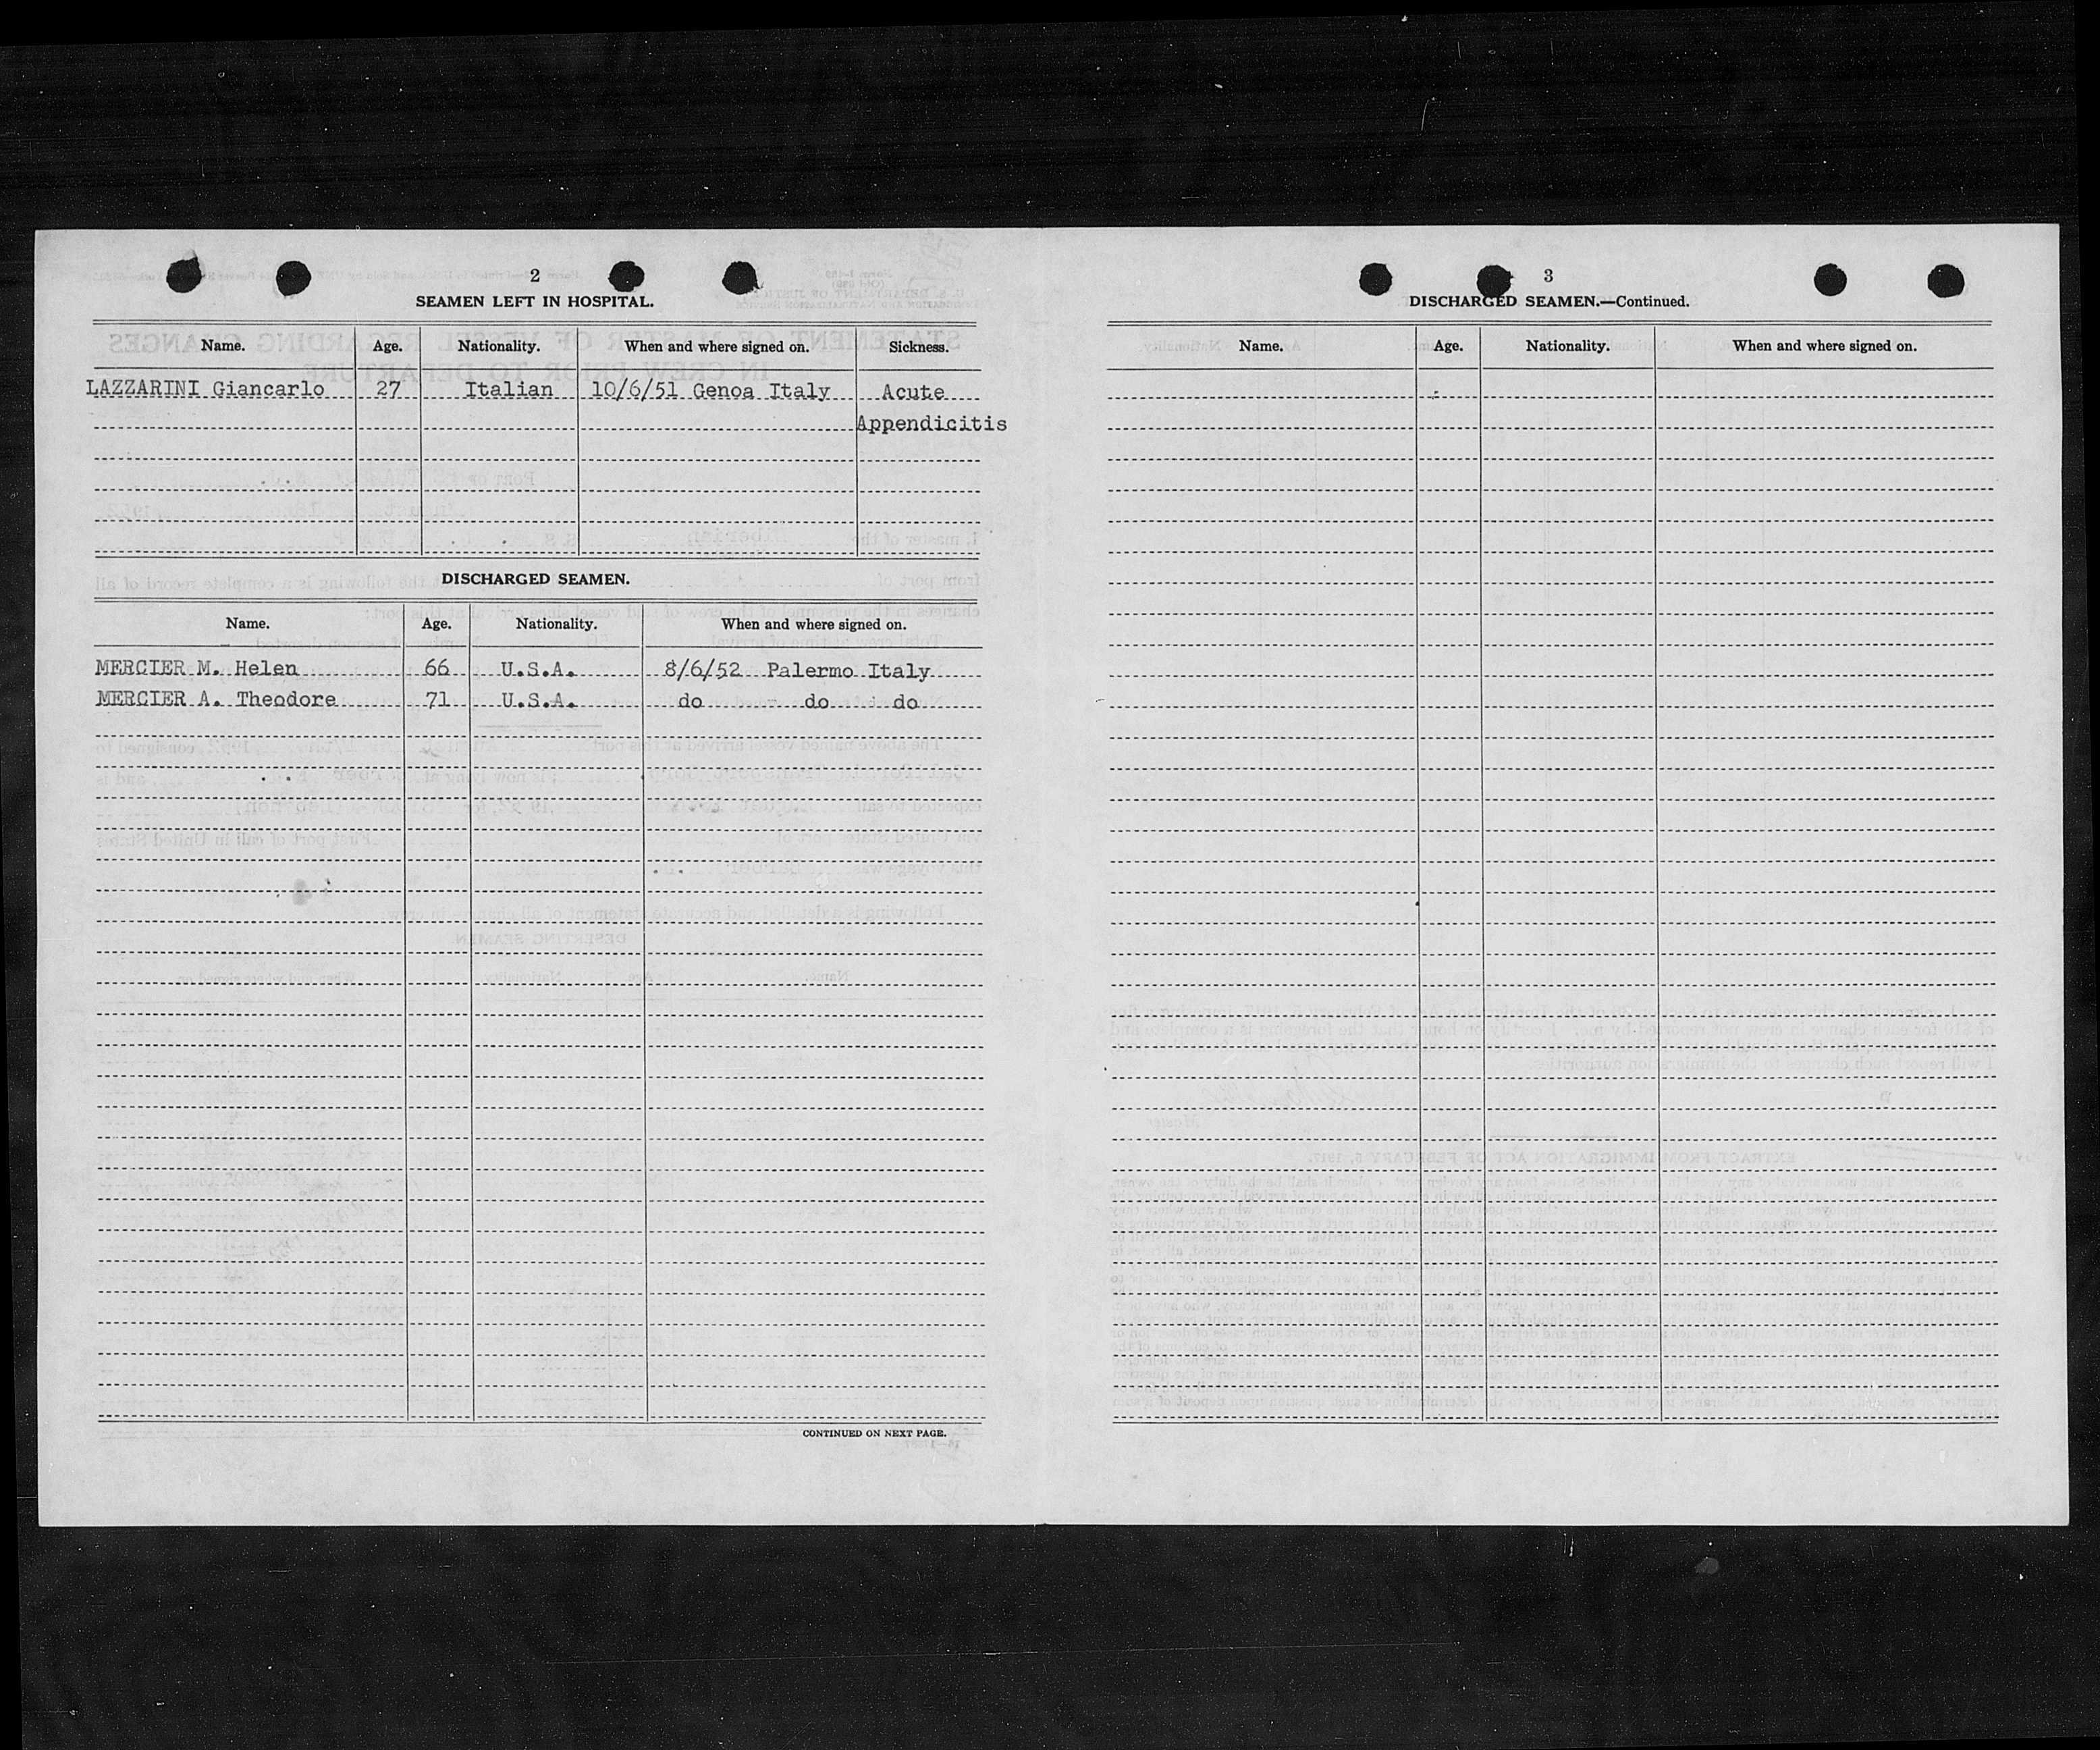 2
SEAMEN LEFT IN HOSPITAL.
Name. Age. Nationality. When and where signed on. Sickness.
LAZZARINI Giancarlo 27 Italian 10/6/51 Genoa Italy Acute
Appendicitis
DISCHARGED SEAMEN.
Name. Age. Nationality. When and where signed on.
MERCIER M. Helen 66 U.S.A. 8/6/52 Palermo Italy
MERCIER A. Theodore 71 U.S.A. do do do
CONTINUED ON NEXT PAGE.
3
DISCHARGED SEAMEN.—Continued.
Name. Age. Nationality. When and where signed on.